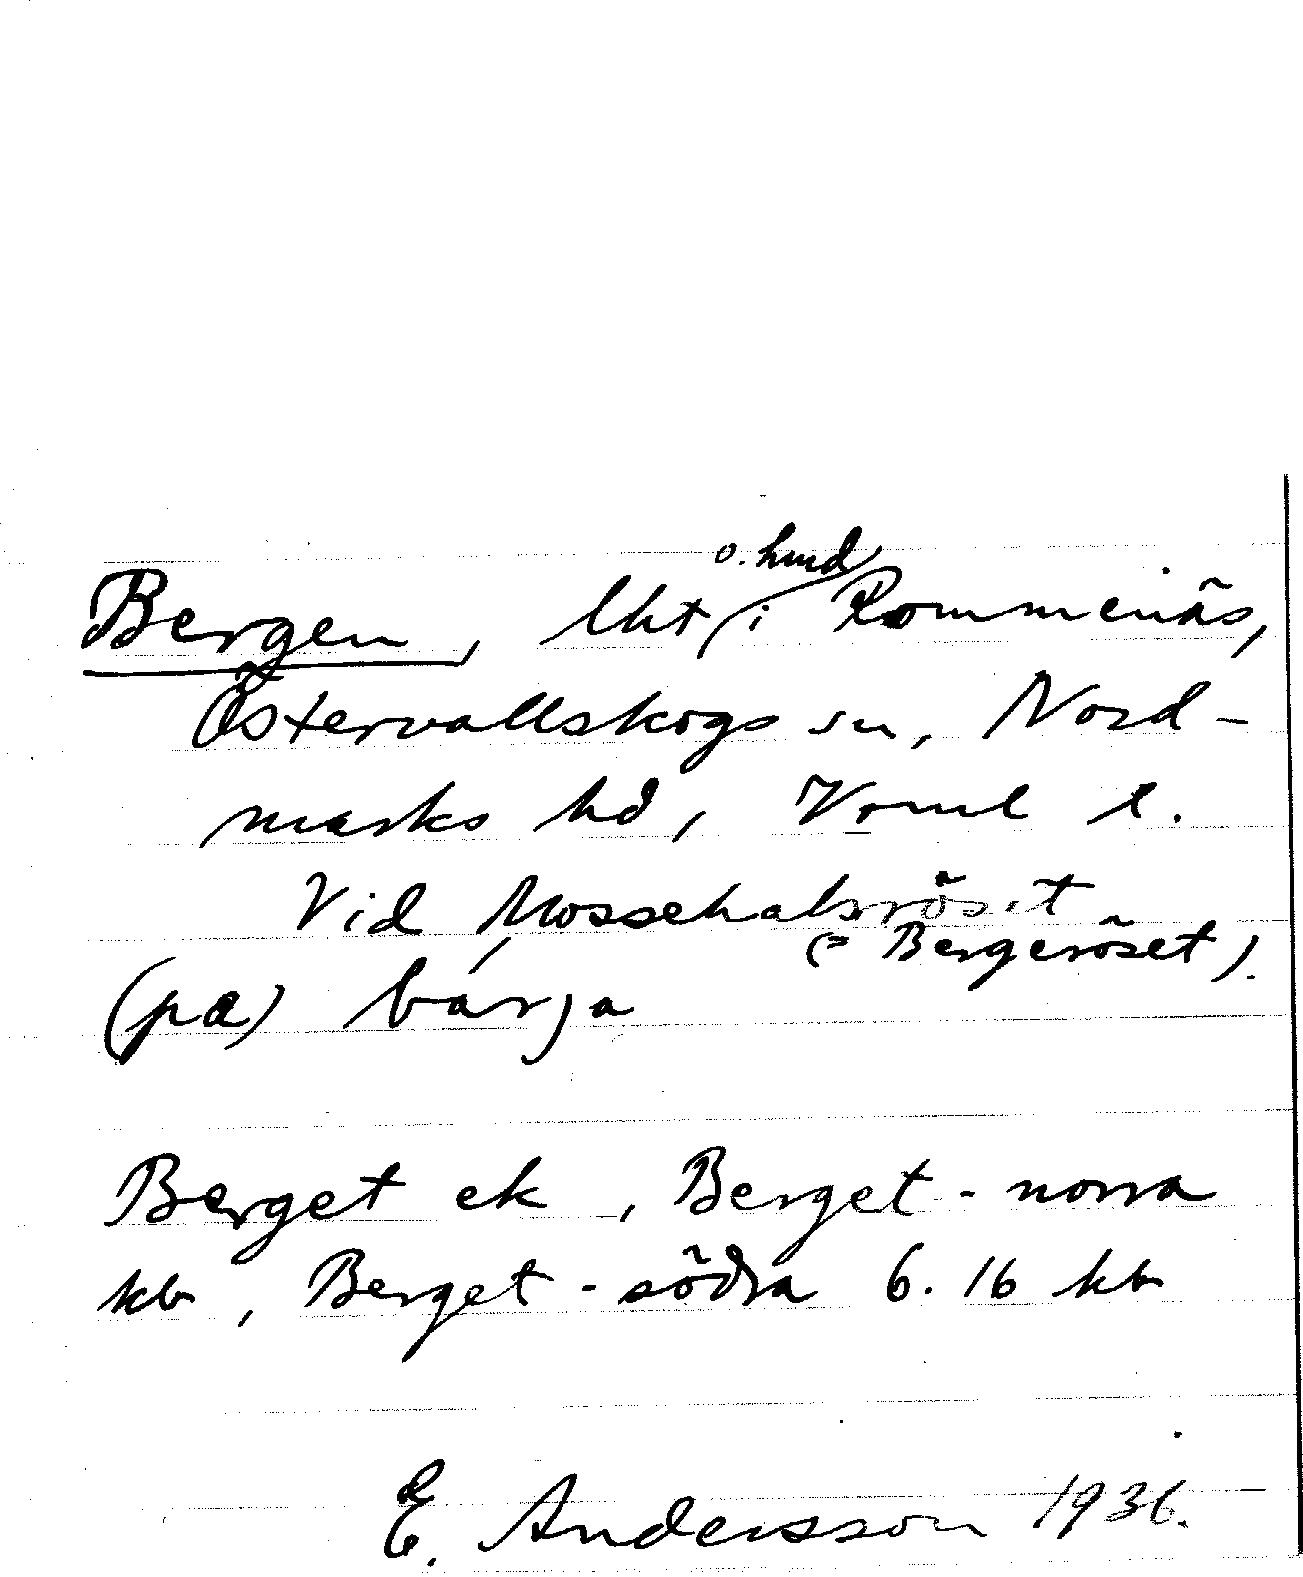 Bergen, lht o. hmd i Rommenäs,
Östervallskogs sn, Nord-
marks hd, Vrml l.
Vid Mossehalsröset
(= Bergeröset).
(pa) bárja
Berget ek, Berget-norra
kb, Berget-södra 6.16 kb
E. Andersson 1936.